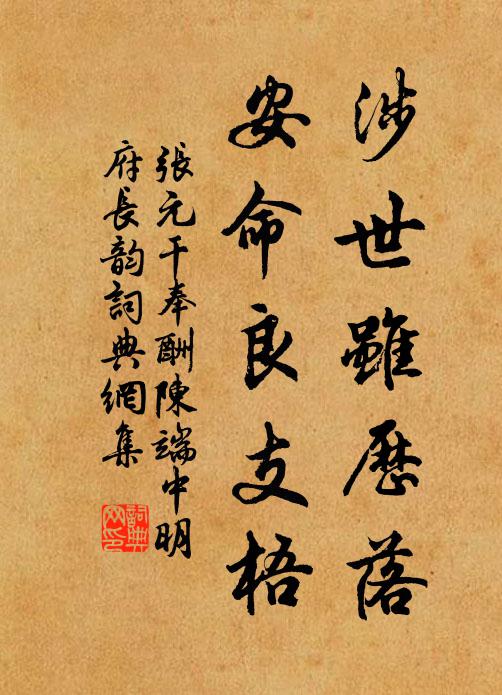 涉世雖歷落
安命良支梧
張元干奉酬陳端中明
府長韵詞典網集
詞典网印